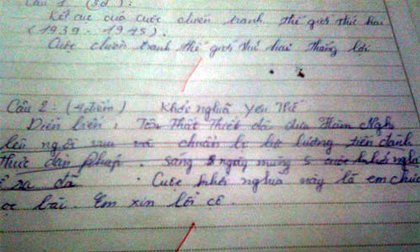 Câu 1 (3đ):
Kết cục của cuộc chiến tranh thế giới thứ hai
(1939 - 1945).
Cuộc chiến tranh thế giới thứ hai thắng lợi
Câu 2: (4 điểm) Khởi nghĩa Yên Thế
Diễn biến: Tôn Thất Thuyết đã đưa Hàm Nghi
lên ngôi vua và chuẩn bị lực lượng tiến đánh
thực dân Pháp sang 5 ngày mùng 5 cuộc khởi nghĩa
ra đã Cuộc khởi nghĩa này là em chưa
bài. Em xin lỗi cô